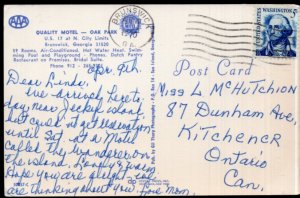 AAA
QUALITY MOTEL — OAK PARK
U.S. 17 at N. City Limits
Brunswick, Georgia 31520
59 Rooms. Air-Conditioned, Hot Water Heat. Swimming Pool and Playground - Phones. Dutch Pantry Restaurant on Premises. Bridal Suite.
Phone 912 - 265
BRUNSWICK
WASHINGTON
5c
POST CARD
Apr. 9th.
Dear Linda:
We arrived here to-
day near Jeckyl island
but could not get reservation
until Sat. at a Motel
called the Wanderer on
the island. Lovely & warm
Hope you are alright. We
are thinking about you. Love Mom.
Miss L McHUTCHION
87 Dunham Ave
Kitchener
Ontario
Can.